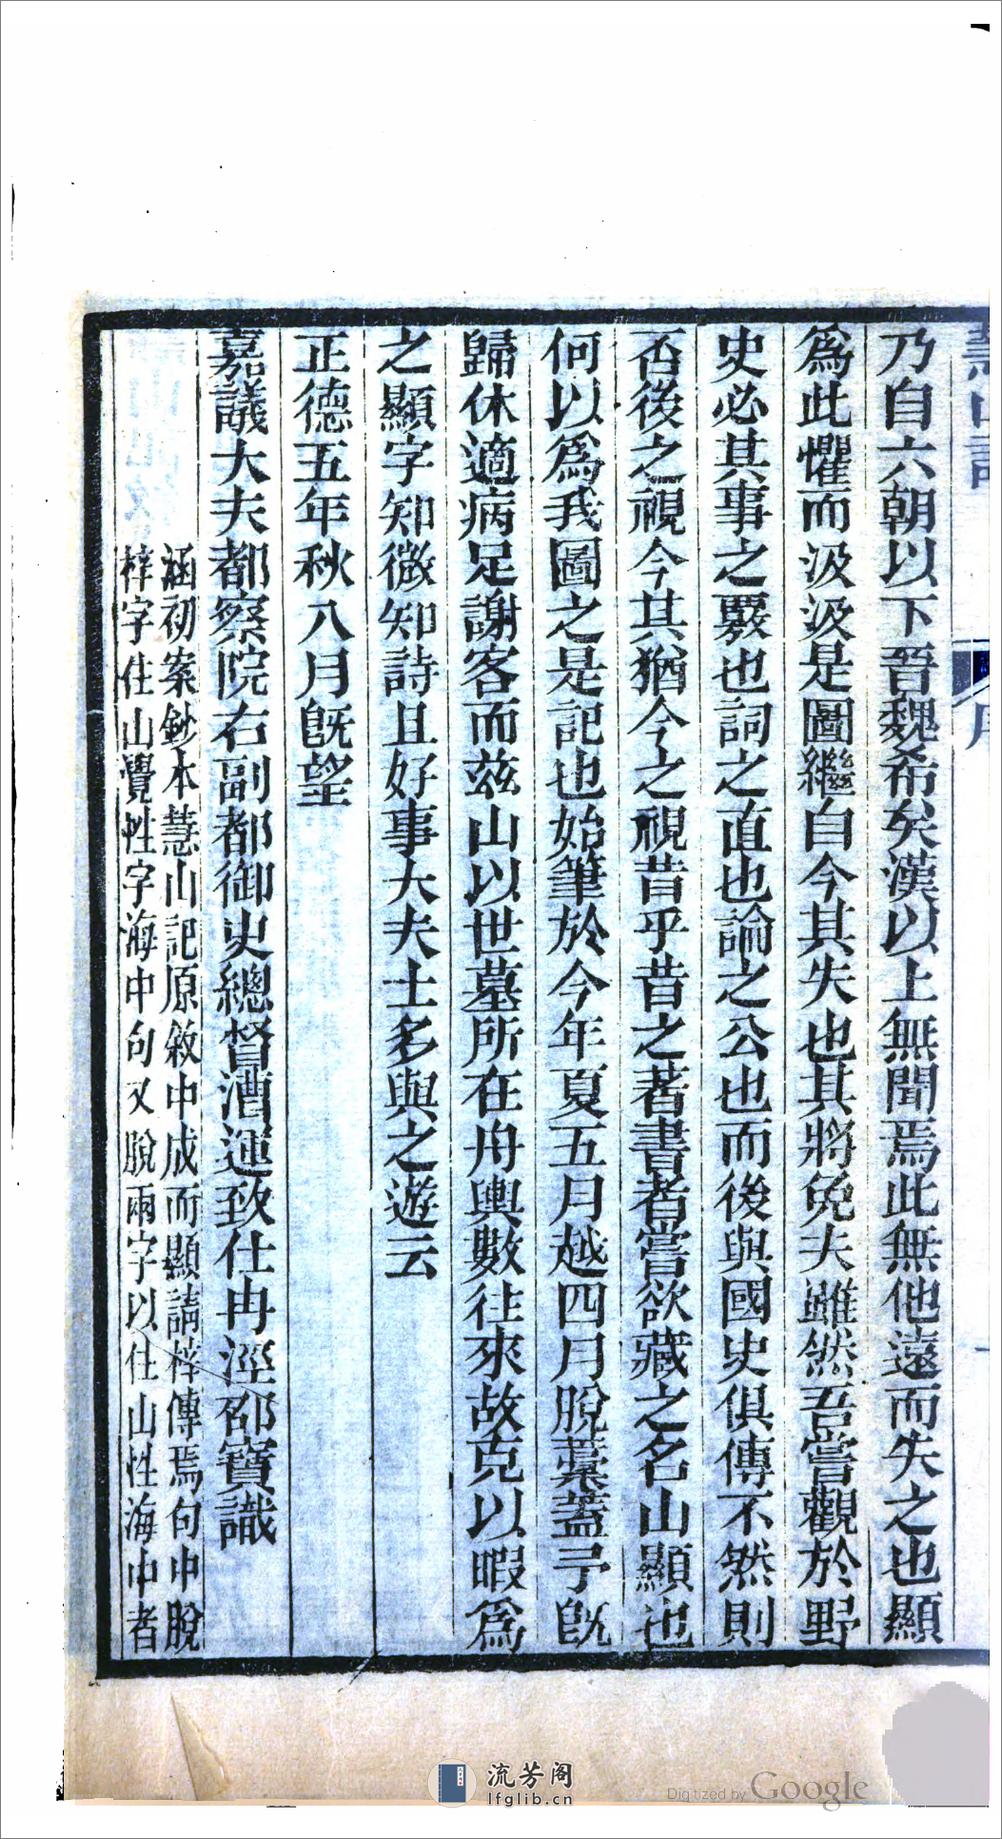 乃自六朝以下晉魏希矣漢以上無聞焉此無他遠而失之也顯
爲此懼而汲汲是圖繼自今其失也其將免夫雖然吾嘗觀於野
史必其事之覈也詞之直也論之公也而後與國史俱傳不然則
否後之視今其猶今之視昔乎昔之著書者嘗欲藏之名山顯也
何以爲我圖之是記也始筆於今年夏五月越四月脫藁蓋予旣
歸休適病足謝客而茲山以世墓所在舟輿數往來故克以暇爲
之顯字知微知詩且好事大夫士多與之遊云
正德五年秋八月旣望
嘉議大夫都察院右副都御史總督漕運致仕冉涇邵寶識
涵初案鈔本慧山記原敘中成而顯請梓傳焉句中脫
梓字住山覺性字海中句又脫兩字以住山性海中者
流芳阁
lfglib.cn
Digitized by Google